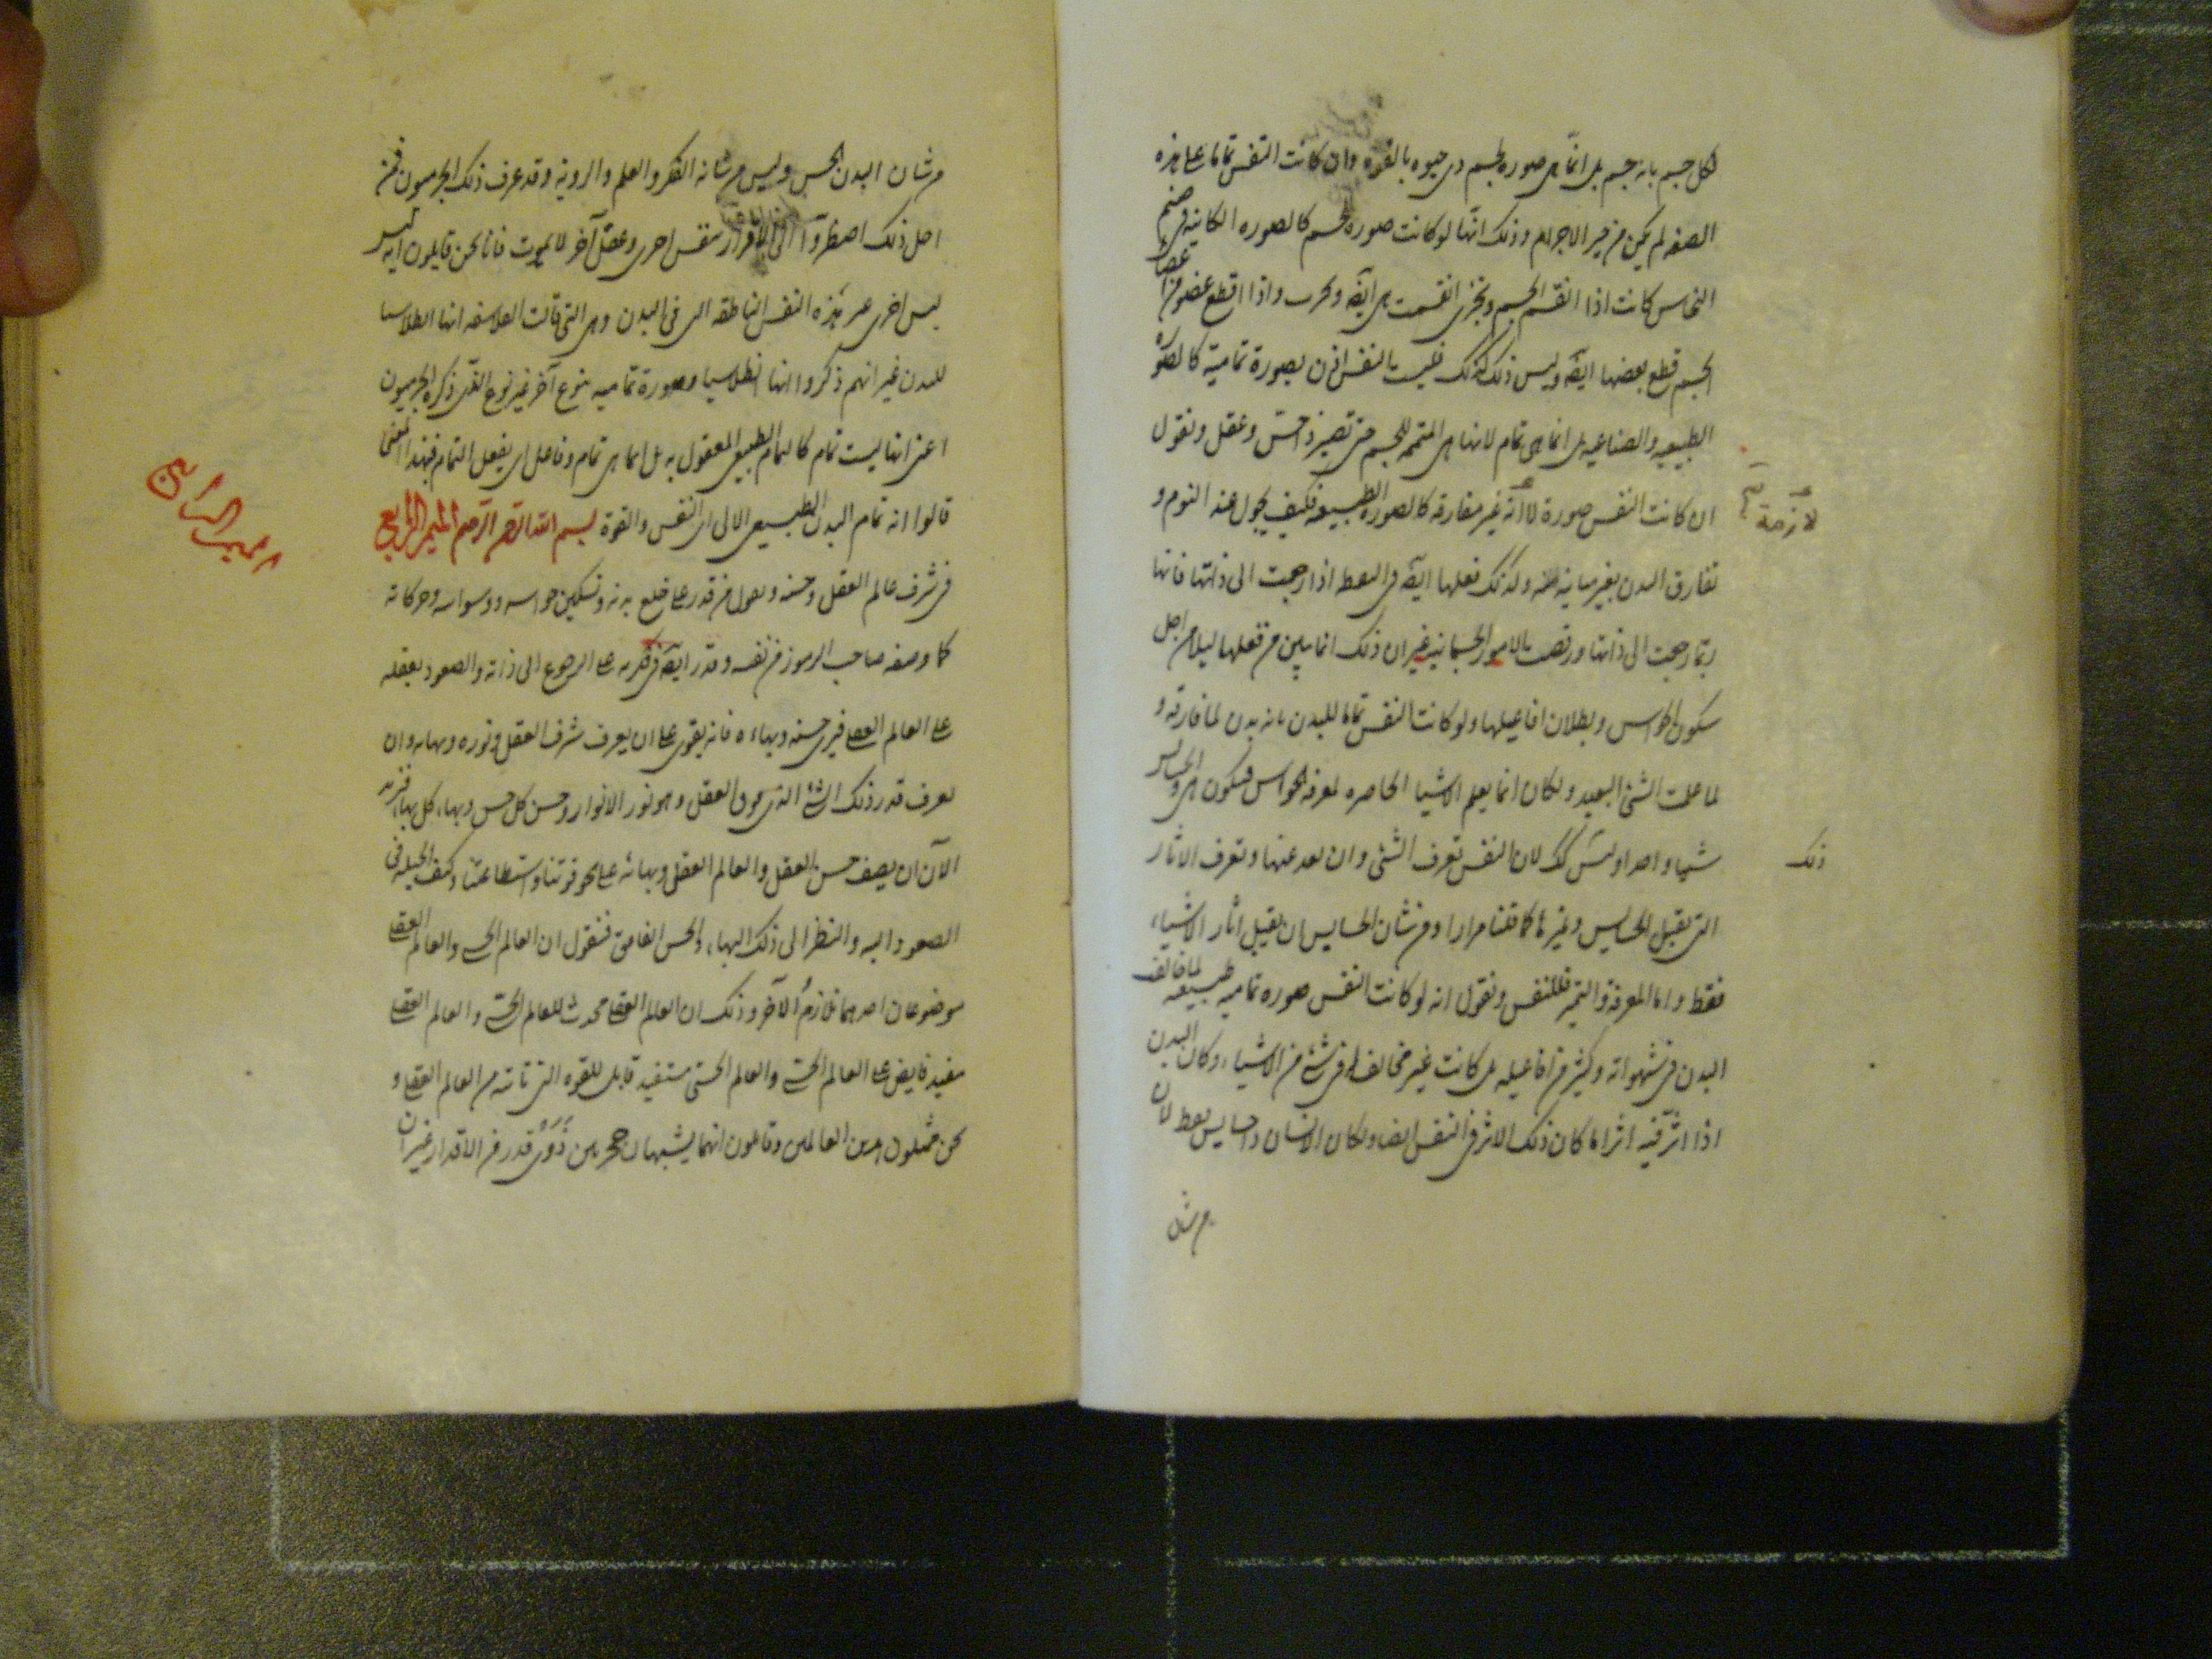 لكل جسم بانه جسم بل انما هى صوره لجسم ذى حيوه بالقوه وان كانت النفس تماما على هذه
الصفه لم يكن من حيز الاجرام وذلك انها لو كانت صوره لجسم كالصوره الكائنه فى صنم
النحاس كانت اذا انقسم الجسم وتجزى انقسمت هى ايضه وتجزت واذا اقطع عضو من اعضاء
الجسم قطع بعضها ايضه وليس ذلك كذلك فليست النفس اذن بصورة تمامية كالصورة
الطبيعيه والصناعيه بل انما هى تمام لانها هى المتممه للجسم حتى تصير ذا حس وعقل ونقول
ان كانت النفس صورة لازمة غير مفارقه كالصوره الطبيعيه فكيف يحول عند النوم و
لازمة
تفارق البدن بغير مباينه منه وكذلك فعلها ايضه فى اليقظه اذا رجعت الى ذاتها فانها
ربما رجعت الى ذاتها ورفضت الامور الجسمانيه غير ان ذلك انما يبين من فعلها ليلا من اجل
سكون الحواس وبطلان افاعيلها ولو كانت النفس تماما للبدن بانه بدن لما فارقه و
لما علمت الشئ البعيد ولكان انما يعلم الاشيا الحاضره لمعرفه الحواس فيكون هى والحسايس
شيا واحدا وليس كك لان النفس تعرف الشئ وان بعد عنها وتعرف الاثار
ذلك
التى يقبل الحسايس وتميزها كما قلنا مرارا ومن شان الحسايس ان يقبل اثار الاشياء
فقط واما المعرفة والتميز فللنفس ونقول انه لو كانت النفس صوره تماميه طبيعيه لما خالفت
البدن فى شهواته وكثير من افاعيله بل كانت غير مخالفه له فى شئ من الاشياء وكان البدن
اذا اثر فيه اثر اما كان ذلك الاثر فى النفس ايضا ولكان الانسان ذا حسايس فقط لان
من شان
من شان البدن الحس وليس من شانه الفكر والعلم والرويه وقد عرف ذلك الجرميون فمن
اجل ذلك اضطروا الى الاقرار بنفس اخرى وعقل آخر لا يموت فانا نحن قايلون انه ليس
نفس اخرى غير هذه النفس الناطقه التى فى البدن وهى التى قالت الفلاسفه انها انطلاسيا
للبدن غير انهم ذكروا انها انطلاسيا وصورة تماميه بنوع آخر غير نوع الذى ذكره الجرميون
اعنى انها ليست تمام كالتمام الطبيعى المعقول به بل انما هى تمام وفاعل اى يفعل التمام فبهذا المعنى
قالوا انه تمام البدن الطبيعى الالى ذى النفس والقوة بسم الله الرحمن الرحيم الميمر الرابع
الميمر الرابع
فى شرف عالم العقل وحسنه ونقول من قدر على خلع بدنه وتسكين حواسه ووسواسه وحركاته
كما وصفه صاحب الرموز من نفسه وقدر ايضه فى فكرته على الرجوع الى ذاته والصعود بعقله
على العالم العقلى فيرى حسنه وبهاءه فانه يقوى على ان يعرف شرف العقل ونوره وبهاءه وان
يعرف قدر ذلك الشئ الذى فوق العقل وهو نور الانوار وحسن كل حسن وبهاء كل بهاء فنريد
الآن ان يصف حسن العقل والعالم العقلى وبهائه على نحو قوتنا واستطاعتنا وكيف الحيله فى
الصعود اليه والنظر الى ذلك البهاء والحسن الفائق فنقول ان العالم الحسى والعالم العقلى
موضوعان احدهما ملازم الآخر وذلك ان العالم العقلى محدث للعالم الحسى والعالم العقلى
مفيد فايض على العالم الحسى والعالم الحسى مستفيد قابل للقوه التى تاتيه من العالم العقلى و
نحن ممثلون هذين العالمين وقايلون انهما يشبهان حجرين ذوى قدر من الاقدار غير ان